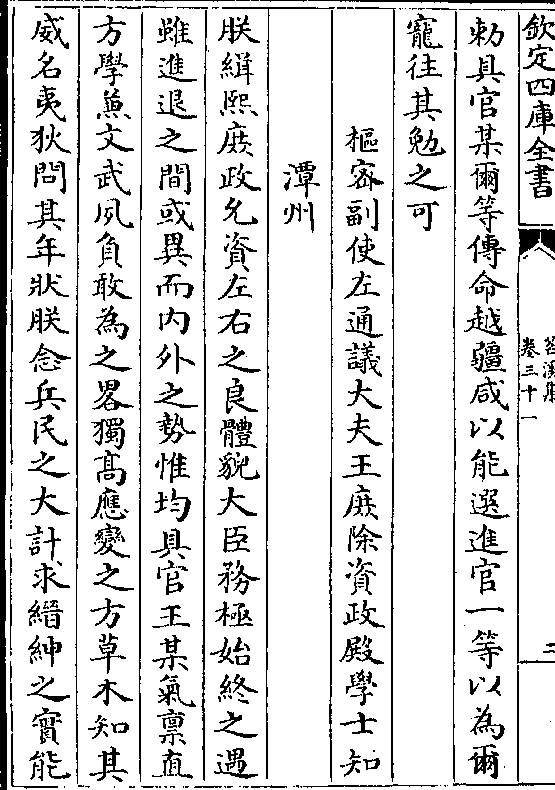 欽定四庫全書
苕溪集
卷三十一
三
勅具官某爾等傳命越疆咸以能選進官一等以為爾
寵往其勉之可
樞密副使左通議大夫王庶除資政殿學士知
潭州
朕緝熙庶政允資左右之良體貌大臣務極始終之遇
雖進退之間或異而内外之勢惟均具官王某氣禀直
方學兼文武夙負敢為之畧獨髙應變之方草木知其
威名夷狄問其年狀朕念兵民之大計求縉紳之實能